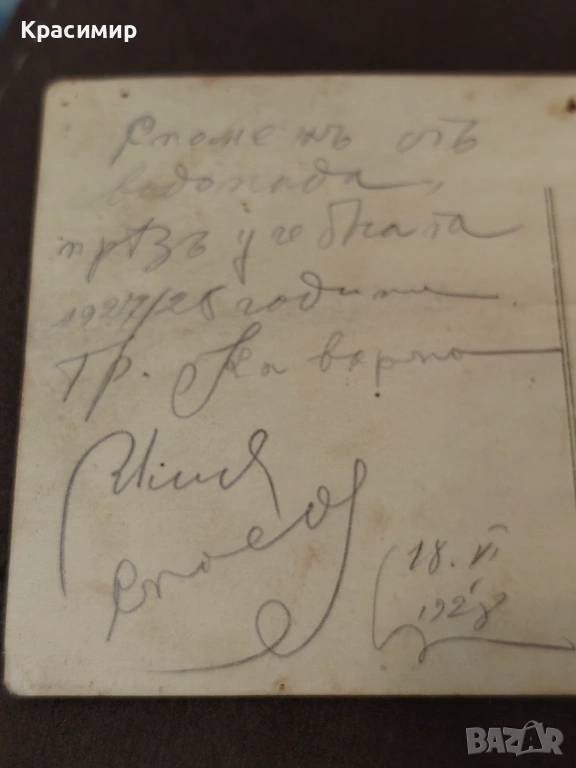 Красимир
Споменъ отъ
водопада,
прѣзъ учебната
1927/28 година
гр.
18. VI
1928
BAZAR